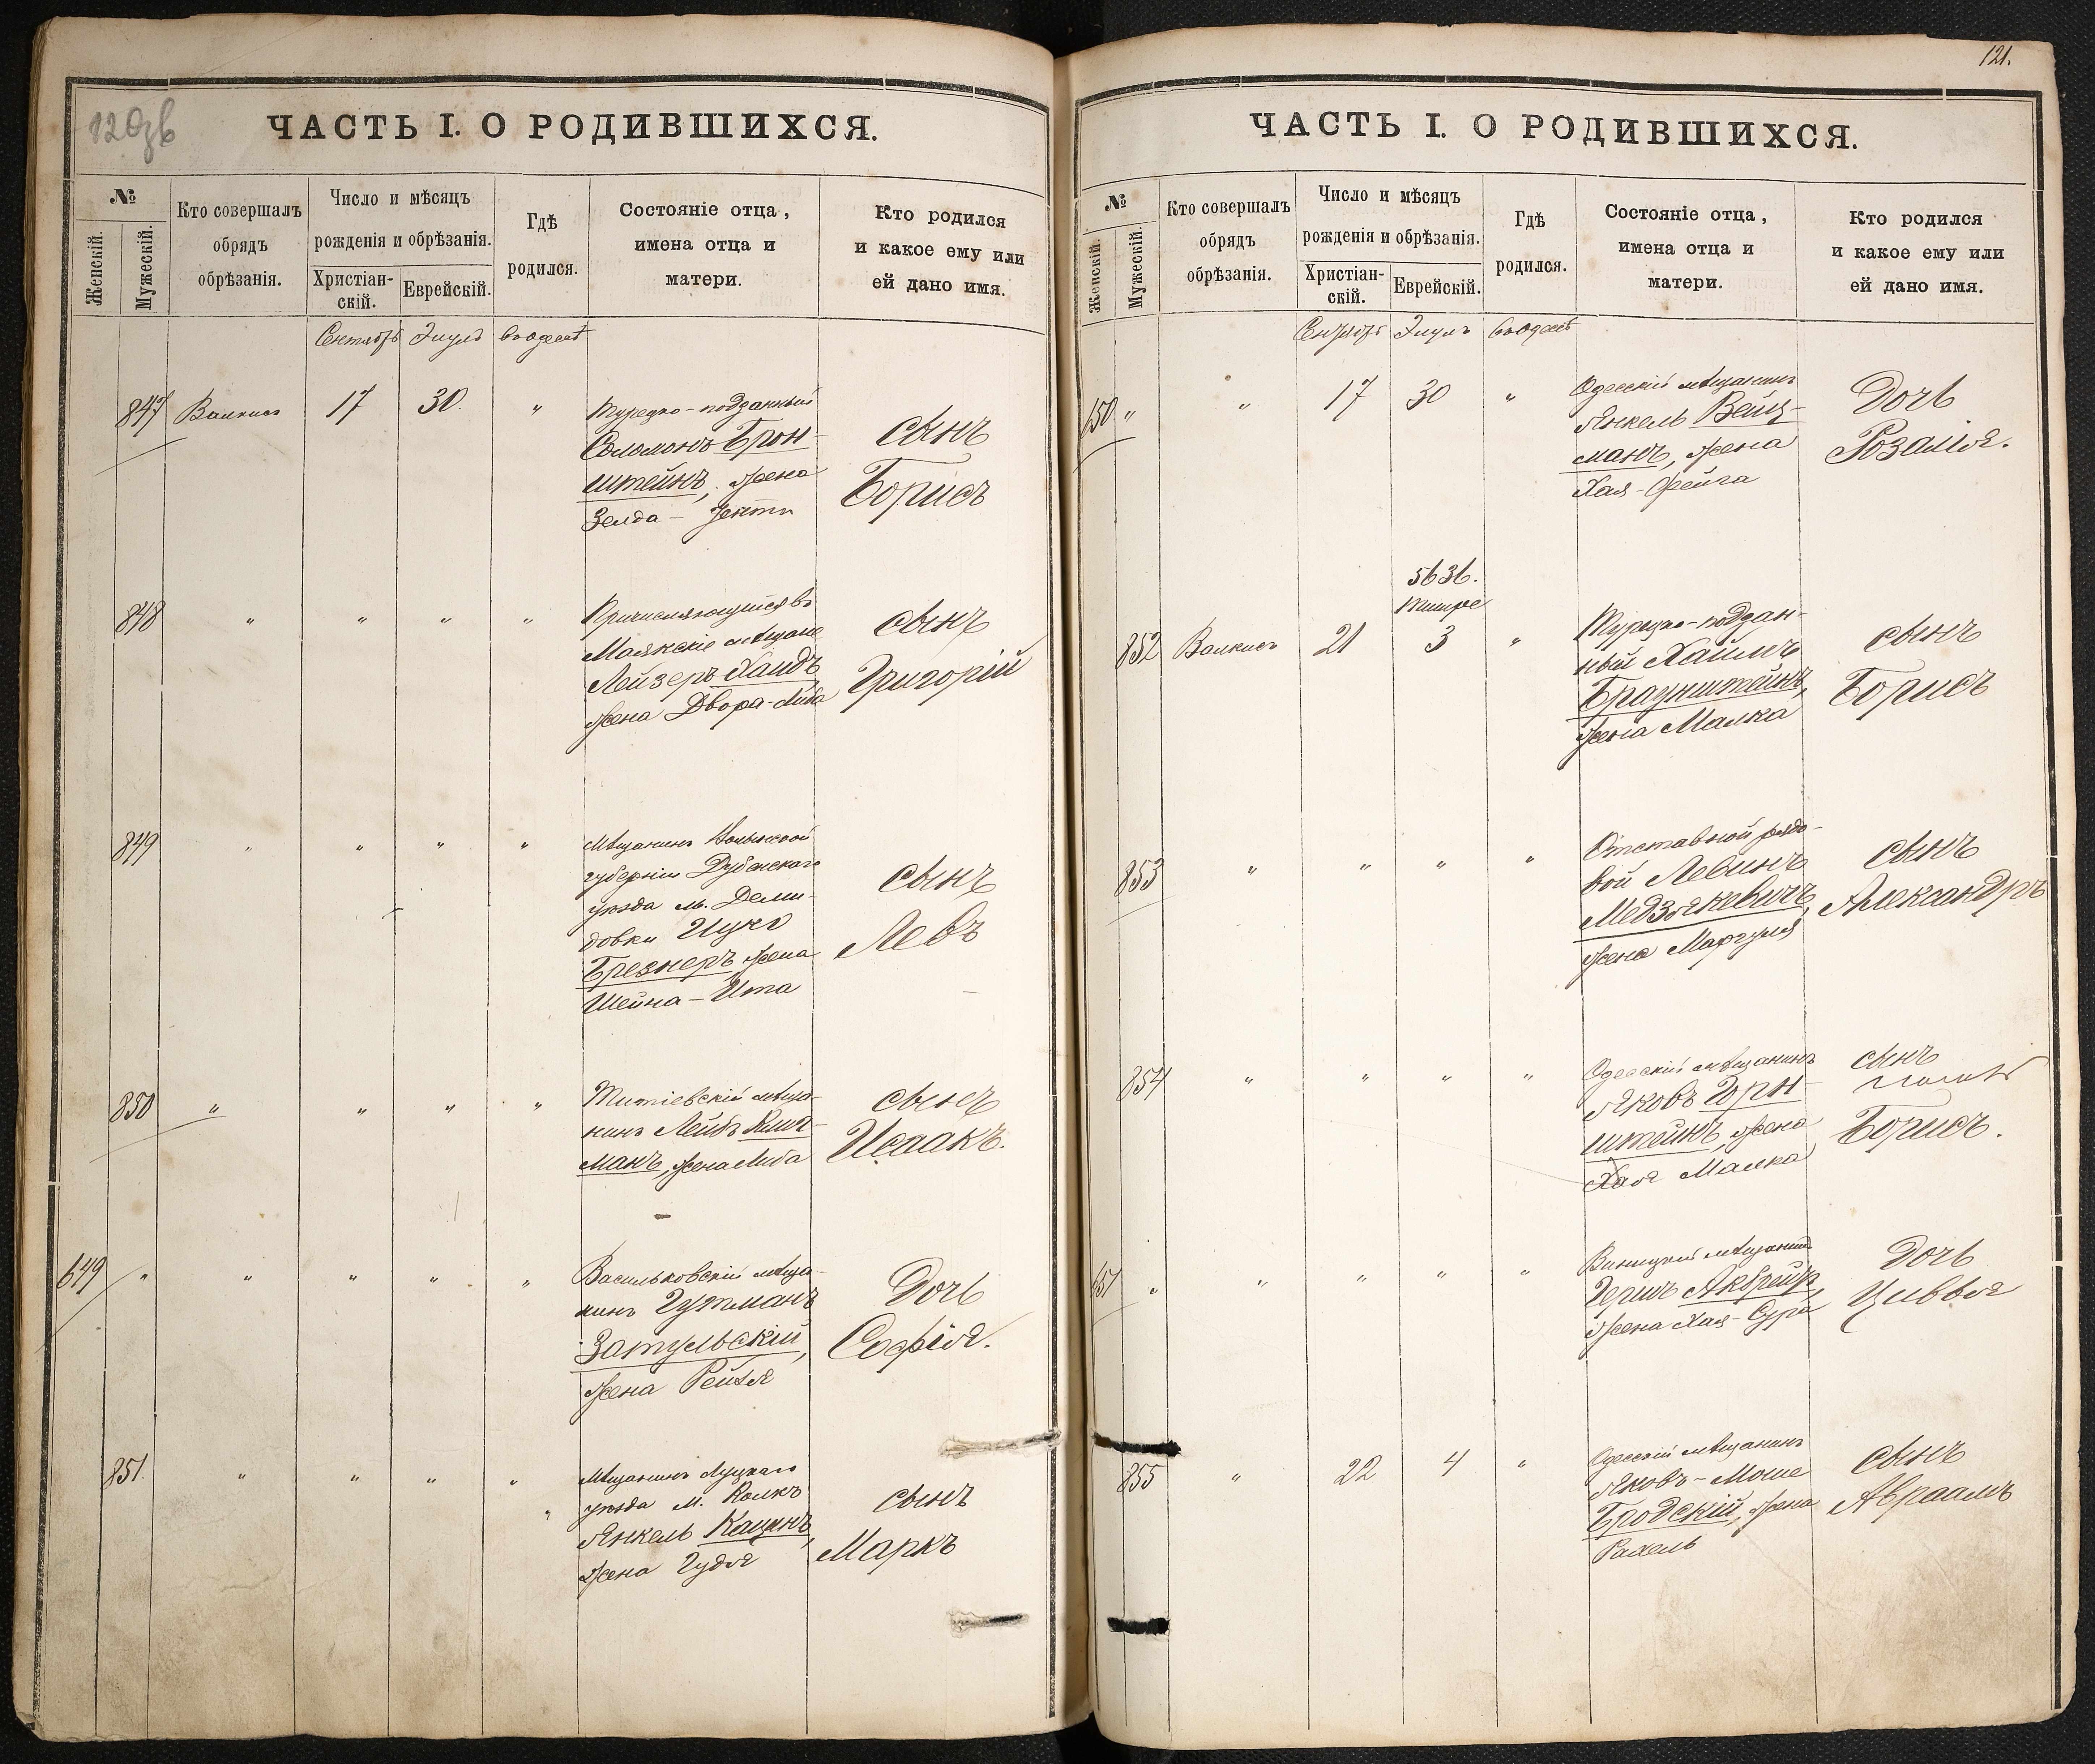 120зв
ЧАСТЬ I. О РОДИВШИХСЯ.
№
Женскій.
Мужескій.
Кто совершалъ
обрядъ
обрѣзанія.
Число и мѣсяцъ
рожденія и обрѣзанія.
Христіан-
скій.
Еврейскій.
Гдѣ
родился.
Состояніе отца,
имена отца и
матери.
Кто родился
и какое ему или
ей дано имя.
Сентябрь Элулъ въ Одессѣ
847 17 30 "
Турецко-подданный
Соломонъ Брон-
штейнъ, жена
Зелда-
сынъ
Борисъ
848 " " " "
Причисляющійся въ
Маякскіе мѣщане
Лейзеръ Хаидъ,
жена Двора-Либа
сынъ
Григорій
849 " " " "
Мѣщанинъ Волынской
губерніи Дубенскаго
уѣзда м. Деми-
довки Ицко
Брезнеръ жена
Шейна-Ита
сынъ
Левъ
850 " " " "
Титіевскій мѣща-
нинъ Лейбъ
манъ, жена Либа
сынъ
Исаакъ.
649 " " " " "
Васильковскій мѣща-
нинъ Гутманъ
Затульскій,
жена Рейзя
Дочь
Софія.
851. " " " "
Мѣщанинъ Луцкаго
уѣзда м. Колко
Янкель Кацынъ,
жена Гудя
сынъ
Маркъ
121.
ЧАСТЬ I. О РОДИВШИХСЯ.
№
Женскій.
Мужескій.
Кто совершалъ
обрядъ
обрѣзанія.
Число и мѣсяцъ
рожденія и обрѣзанія.
Христіан-
скій.
Еврейскій.
Гдѣ
родился.
Состояніе отца,
имена отца и
матери.
Кто родился
и какое ему или
ей дано имя.
Сентябрь Элулъ въ Одессѣ
650 " " 17 30 "
Одесскій мѣщанинъ
Янкель Вейц-
манъ, жена
Хая-Фейга
Дочь
Розалія.
5636.
Тишре
852 21 3 "
Турецко-поддан-
ный Хаимъ
Браунштейнъ,
жена Малка
сынъ
Борисъ
853 " " " "
Отставной рядо-
вой Левинъ
Медзякевичъ,
жена Маргуля
сынъ
Александръ
854 " " " "
Одесскій мѣщанинъ
Яковъ Горн-
штейнъ, жена
Хая Малка
сынъ
Борисъ.
651 " " " " "
Виницкій мѣщанинъ
Гершъ
жена Хая-Сура
Дочь
Цивья
855 " 22 4 "
Одесскій мѣщанинъ
Яковъ-Моше
Бродскій, жена
Рахель
сынъ
Авраамъ